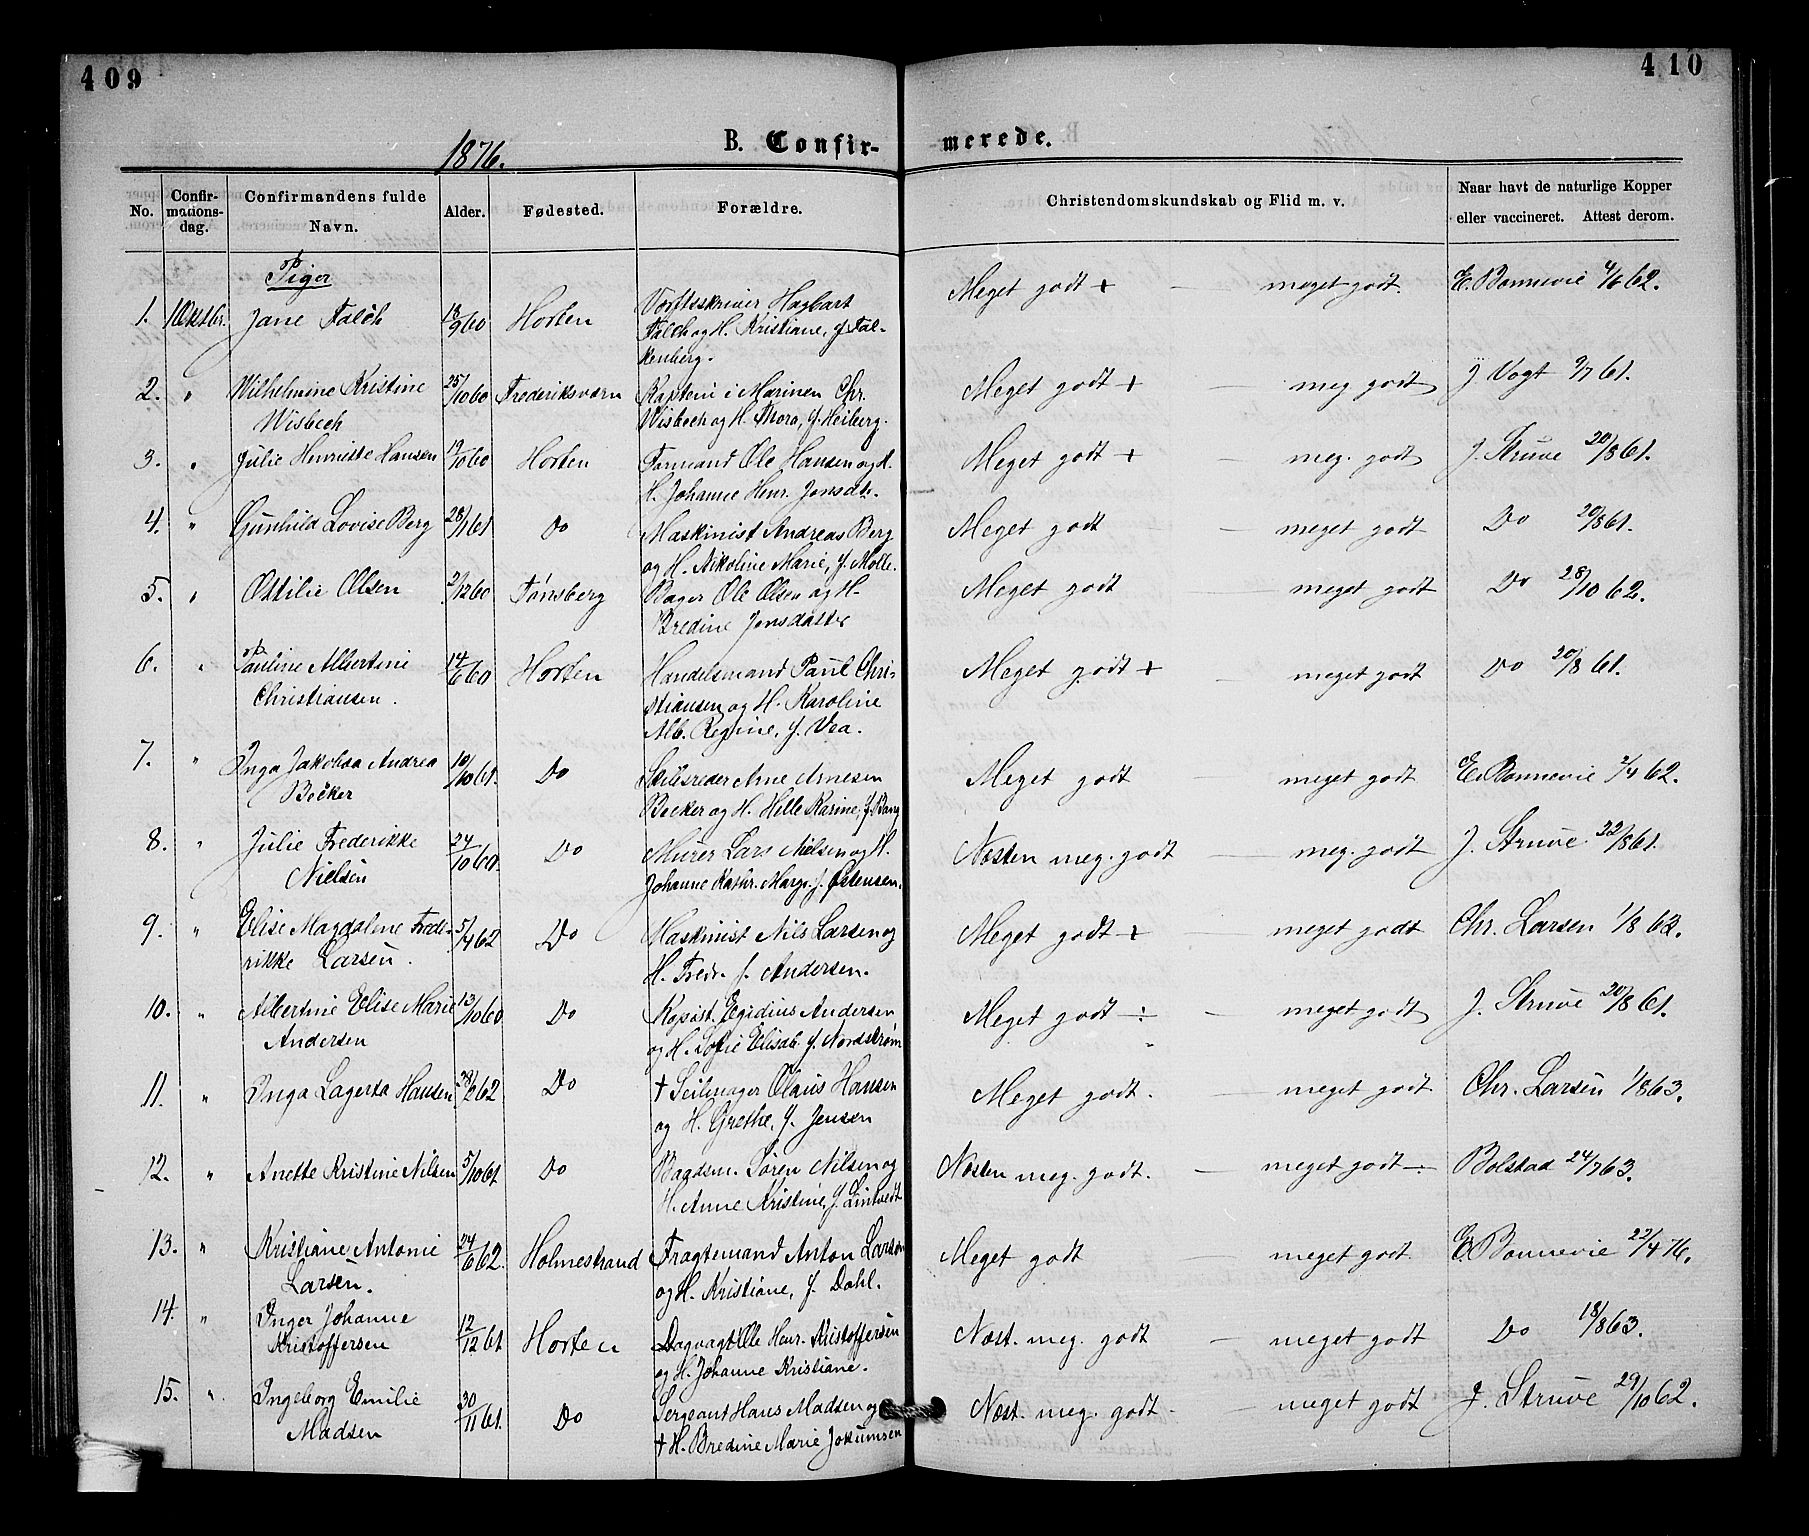 409
410
1876.
B. Confir-
merede.
No.
Confir-
mations-
dag.
Confirmandens fulde
Navn.
Alder.
Fødested.
Forældre.
Christendomskundskab og Flid m. v.
Naar havt de naturlige Kopper
eller vaccineret. Attest derom.
Piger
1. 1 Oktbr. Jane Falch 18/9 60 Horten
Hagbart
Falch og H. Kristiane, f. Fal-
kenberg.
Meget godt + — meget godt. E. Bonnevie 4/6 62.
2. " Wilhelmine Kristine
Wisbech
25/10 60 Frederiksværn
Kaptein i Marinen Chr.
Wisbech og H. Thora, f. Heiberg.
Meget godt + — meg. godt J. Vogt 9/7 61.
3. " Julie Henriette Hansen 19/10 60 Horten
Formand Ole Hansen og H.
H. Johanne Henr. Jonsdt.
Meget godt + — meg. godt J. Struve 20/8 61.
4. " Gunhild Lovise Berg 28/1 61 Do
Maskinist Andreas Berg
og H. Nikoline Marie, f. Molle.
Meget godt — meget godt Do 20/8 61.
5. " Ottilie Olsen 2/12 60 Tønsberg
Bager Ole Olsen og H.
Bredine Jonsdatter
Meget godt — meget godt Do 28/10 62.
6. " Pauline Albertine
Christiansen.
14/6 60 Horten
Handelsmand Paul Chri-
stiansen og H. Karoline
Alb. Regine, f. Vea.
Meget godt + — meget godt Do 20/8 61.
7. " Inga Jakobaa Andrea
Becker
10/10 61. Do
Skibsreder Arne Arnesen
Becker og H. Helle Karine, f. Bang
Meget godt meget godt E. Bonnevie 2/4 62.
8. " Julie Frederikke
Nielsen
24/10 60. Do
Murer Lars Nielsen og H.
Johanne Kathr. Marg. f. Østensen.
Næsten meg. godt — meg. godt J. Struve 22/8 61.
9. " Elise Magdaline Frede-
rikke Larsen.
5/4 62 Do
Maskinist Nils Larsen og
H. Fredr. f. Andersen.
Meget godt + — meget godt Chr. Larsen 1/8 63.
10. " Albertine Elise Marie
Andersen
13/10 60 Do
Kopist Egidius Andersen
og H. Sofie Elisab. f. Nordstrøm
Meget godt ÷ — meget godt J. Struve 20/8 61.
11. " Inga Lagerta Hansen 62 Do
† Seilmager Olaus Hansen
og H. Grethe, f. Jensen
Meget godt. — meget godt Chr. Larsen 1/8 63.
12. " Anette Kristine Nilsen 5/10 61 Do
Baadsm. Søren Nilsen og
H. Anne Kristine, f. Lintvedt
Næsten meg. godt. — meget godt ÷ Bolstad 24/7 63.
13. " Kristiane Antonie
Larsen.
24/6 62. Holmestrand
Fragtemand Anton Larsen
og H. Kristiane, f. Dahl.
Meget godt — meget godt. E. Bonnevie 22/4 76.
14. " Inger Johanne
Kristoffersen
12/12 61 Horten
Dagvagt Ole Henr. Kristoffersen
og H. Johanne Kristiane.
Næst. meg. godt — meget godt Do 18/8 63.
15. " Ingeborg Emilie
Madsen
30/11 61. Do
Sergeant Hans Madsen og
† H. Bredine Marie Jokumsen
Næst. meg. godt. — meget godt J. Struve 29/10 62.